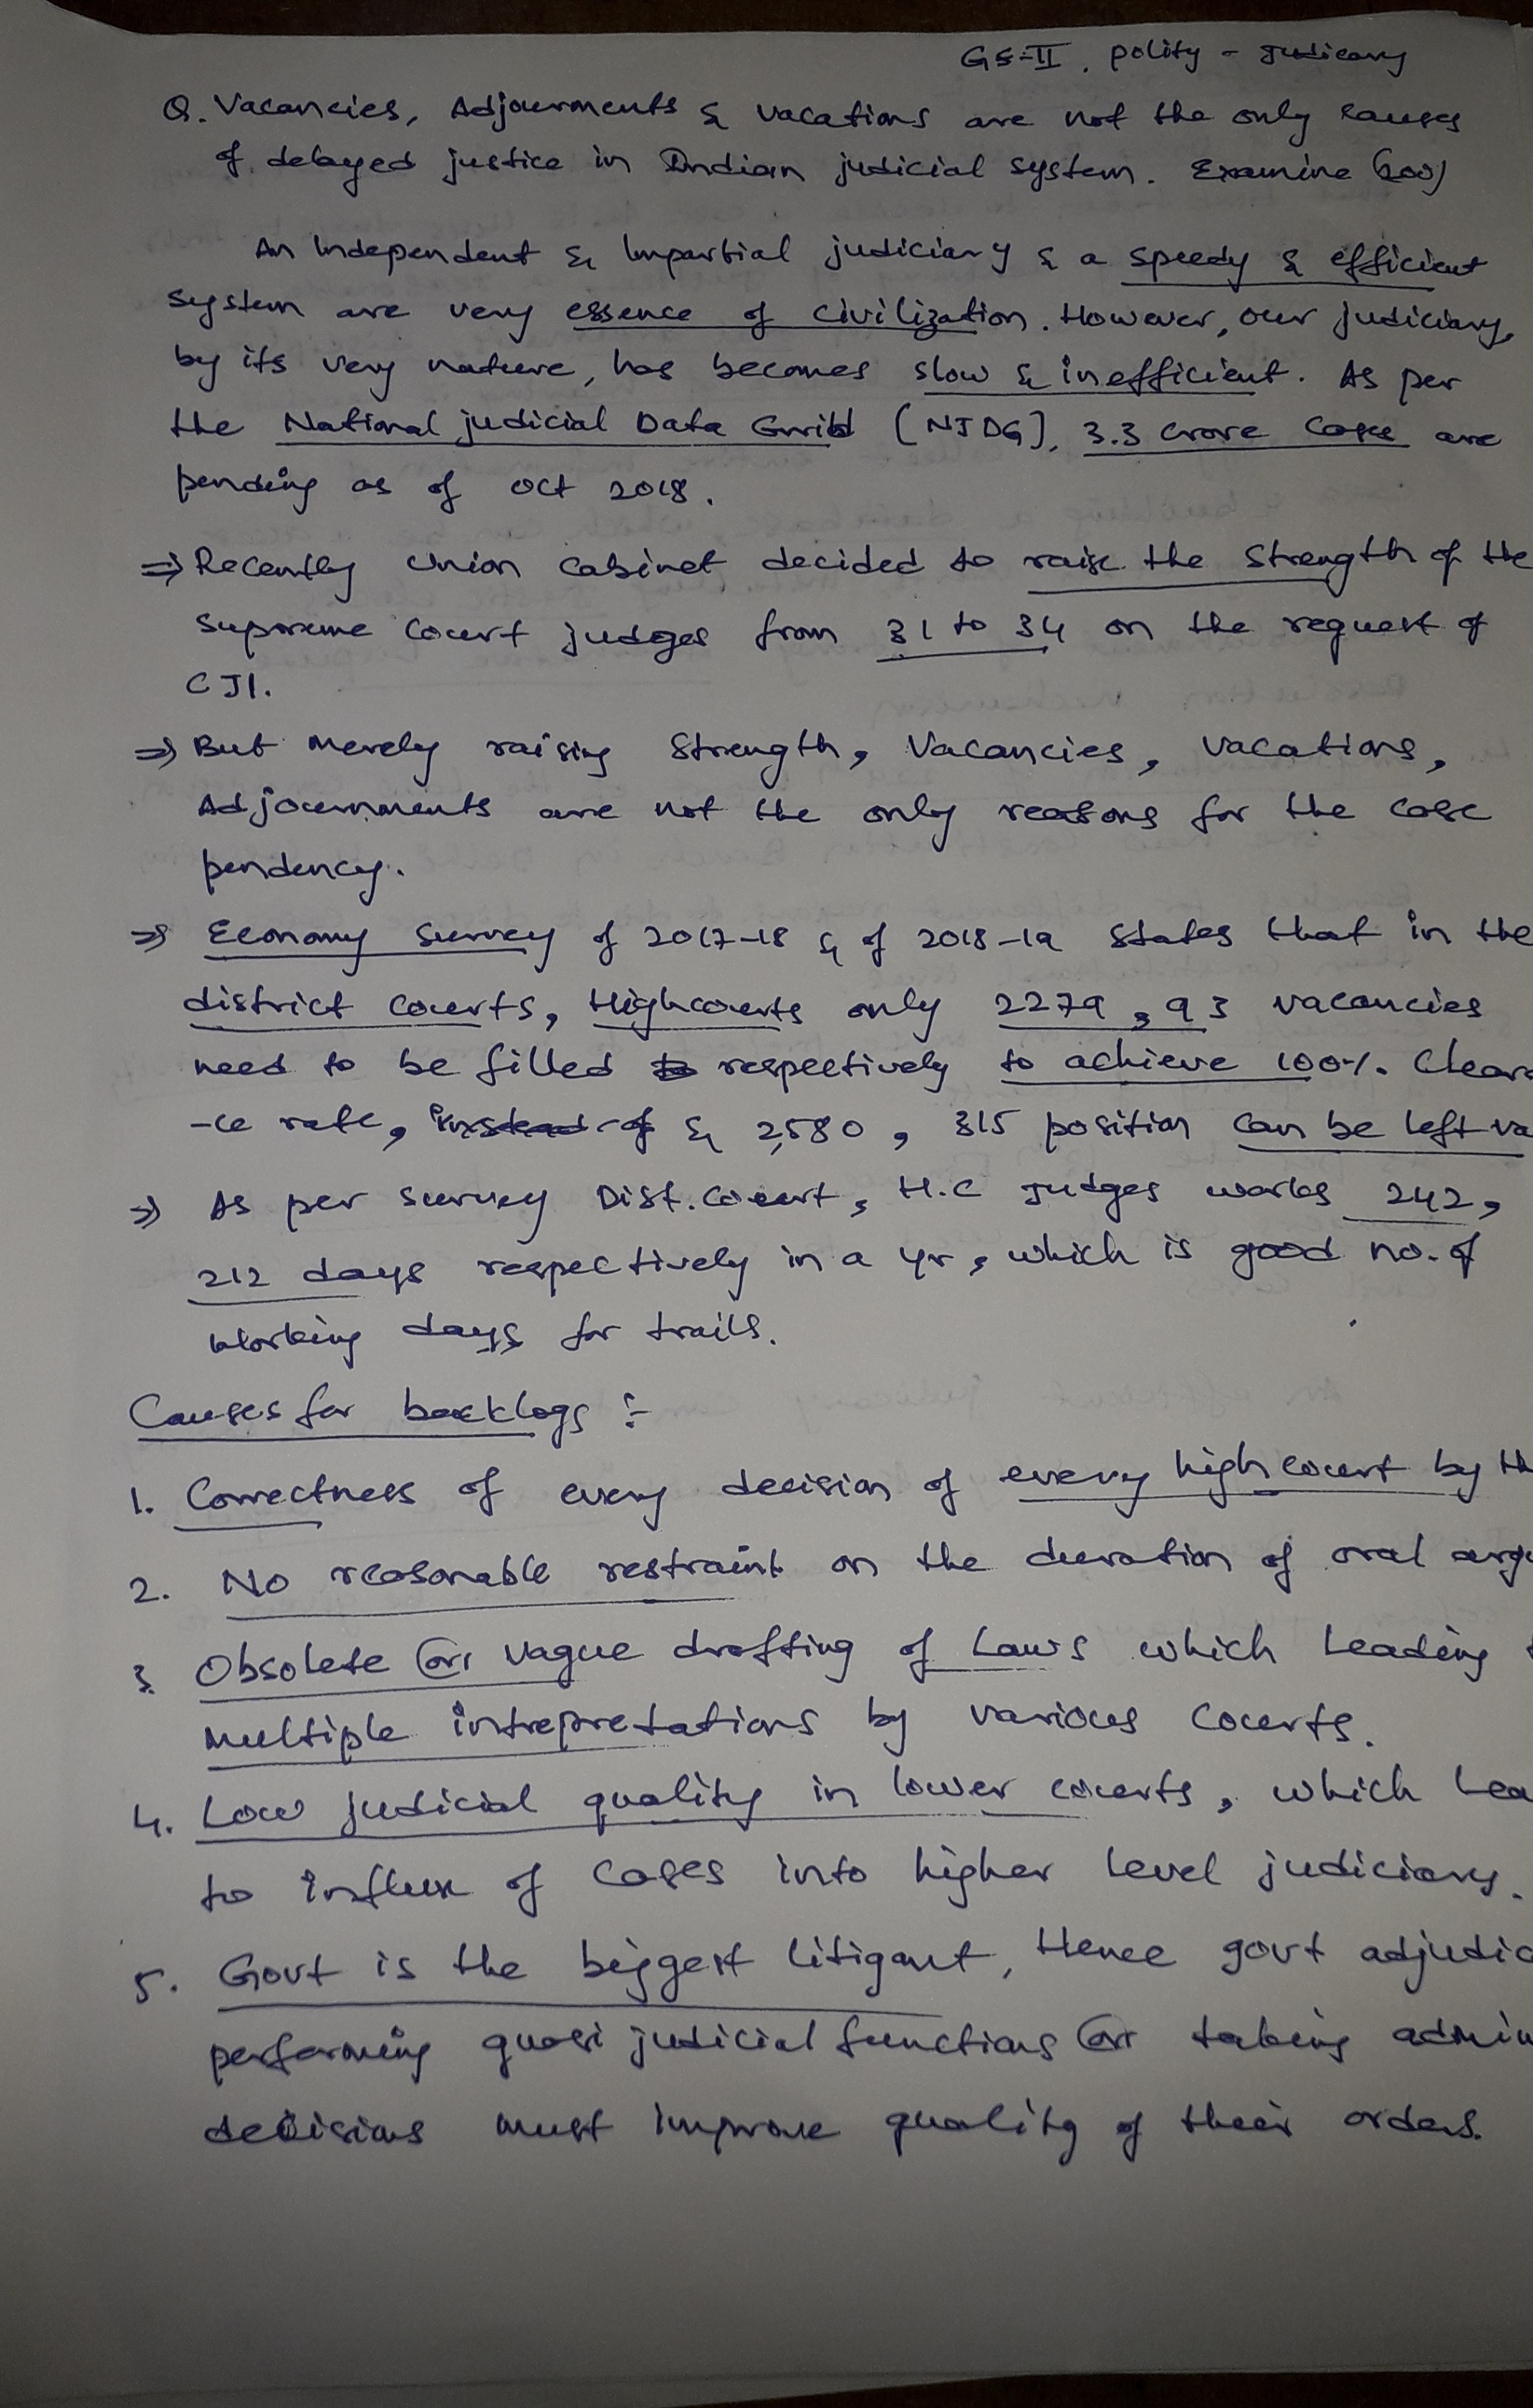 GS-II, polity - Judicary
Q. Vacancies, Adjournments & vacations are not the only causes
of delayed justice in Indian judicial system. Examine (200)
An Independent & Impartial judiciary & a speedy & efficient
system are very essence of civilization. However, our judiciary,
by its very nature, has becomes slow & inefficient. As per
the National judicial Data Grid (NJDG), 3.3 crore cases are
pending as of oct 2018.
⇒ Recently Union Cabinet decided to raise the strength of the
Supreme Court judges from 31 to 34 on the request of
CJI.
⇒ But merely raising strength, Vacancies, vacations,
Adjournments are not the only reasons for the case
pendency.
⇒ Economy survey of 2017-18 & of 2018-19 states that in the
district courts, Highcourts only 2279, 93 vacancies
need to be filled respectively to achieve 100%. Clearn
-ce rate, instead of & 2,580, 315 position can be left va
⇒ As per survey Dist. Court, H.C Judges works 242,
212 days respectively in a yr, which is good no. of
working days for trails.
Causes for backlogs :-
1. Correctness of every decision of every high court by th
2. No reasonable restraint on the duration of oral argu
3 Obsolete (or) vague drafting of Laws which leading t
multiple intrepretations by various courts.
4. Low judicial quality in lower courts, which lea
to influx of cases into higher level judiciary.
5. Govt is the biggest litigant, Hence govt adjudic
performing quasi judicial functions (or) taking admin
decisions must improve quality of their orders.